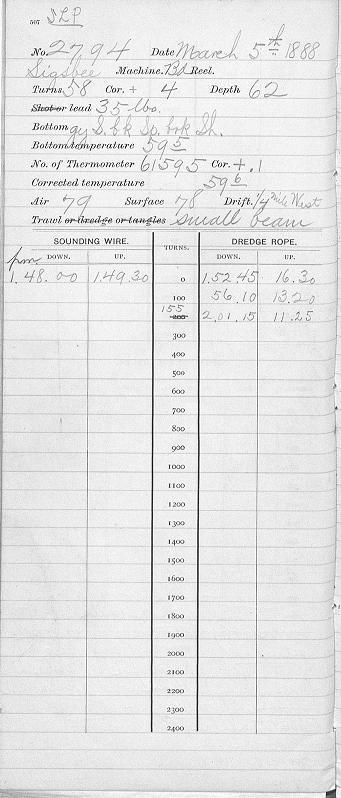 507 SLP
No. 2794 Date March 5th 1888
Sigsbee Machine. Bd Reel.
Turns 58 Cor. + 4 Depth 62
Shot or lead 35 lbs.
Bottom gy S. bk Sp. brk Sh.
Bottom temperature 59 5
No. of Thermometer 61595 Cor. + .1
Corrected temperature 59 6
Air 79 Surface 78 Drift. 1/4 mile West
Trawl or dredge or tangles small beam
SOUNDING WIRE. TURNS. DREDGE ROPE.
DOWN. UP. DOWN. UP.
pm
1.48.00 1.49.30 0 1.52.45 16.30
100 56.10 13.20
155
200 2.01.15 11.25
300
400
500
600
700
800
900
1000
1100
1200
1300
1400
1500
1600
1700
1800
1900
2000
2100
2200
2300
2400